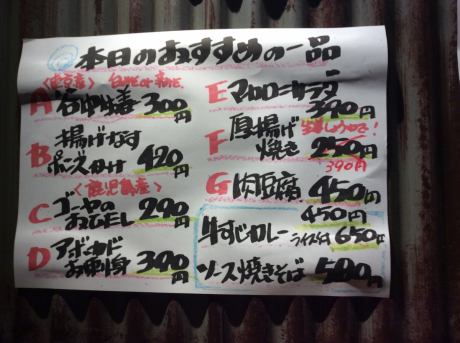 本日のおすすめの一品
〈東京産〉
A 谷中生姜 300円
揚げなす
B ポンズかけ 420円
〈鹿児島産〉
C ゴーヤの
おひたし 290円
D アボカド
お刺身 390円
E マカロニサラダ
390円
生姜しょうゆで!
F 厚揚げ
焼き 250円
390円
G 肉豆腐 450円
450円
牛すじカレー ライス付 650円
ソース焼きそば 500円